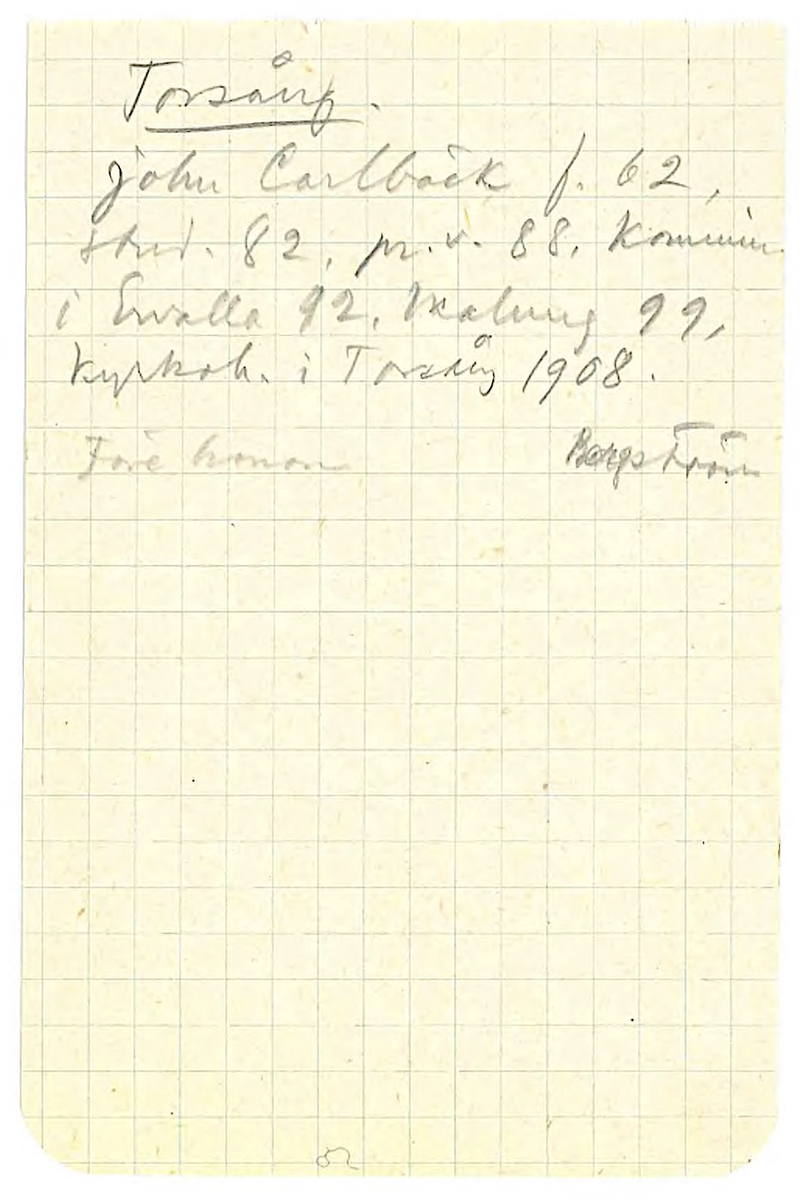 Torsång.
John Carlbäck f. 62,
stud. 82, pr.v. 88. Kommin.
i Ervalla 92, Malung 99,
Kyrkoh. i Torsång 1908.
Före honom Bergström
52